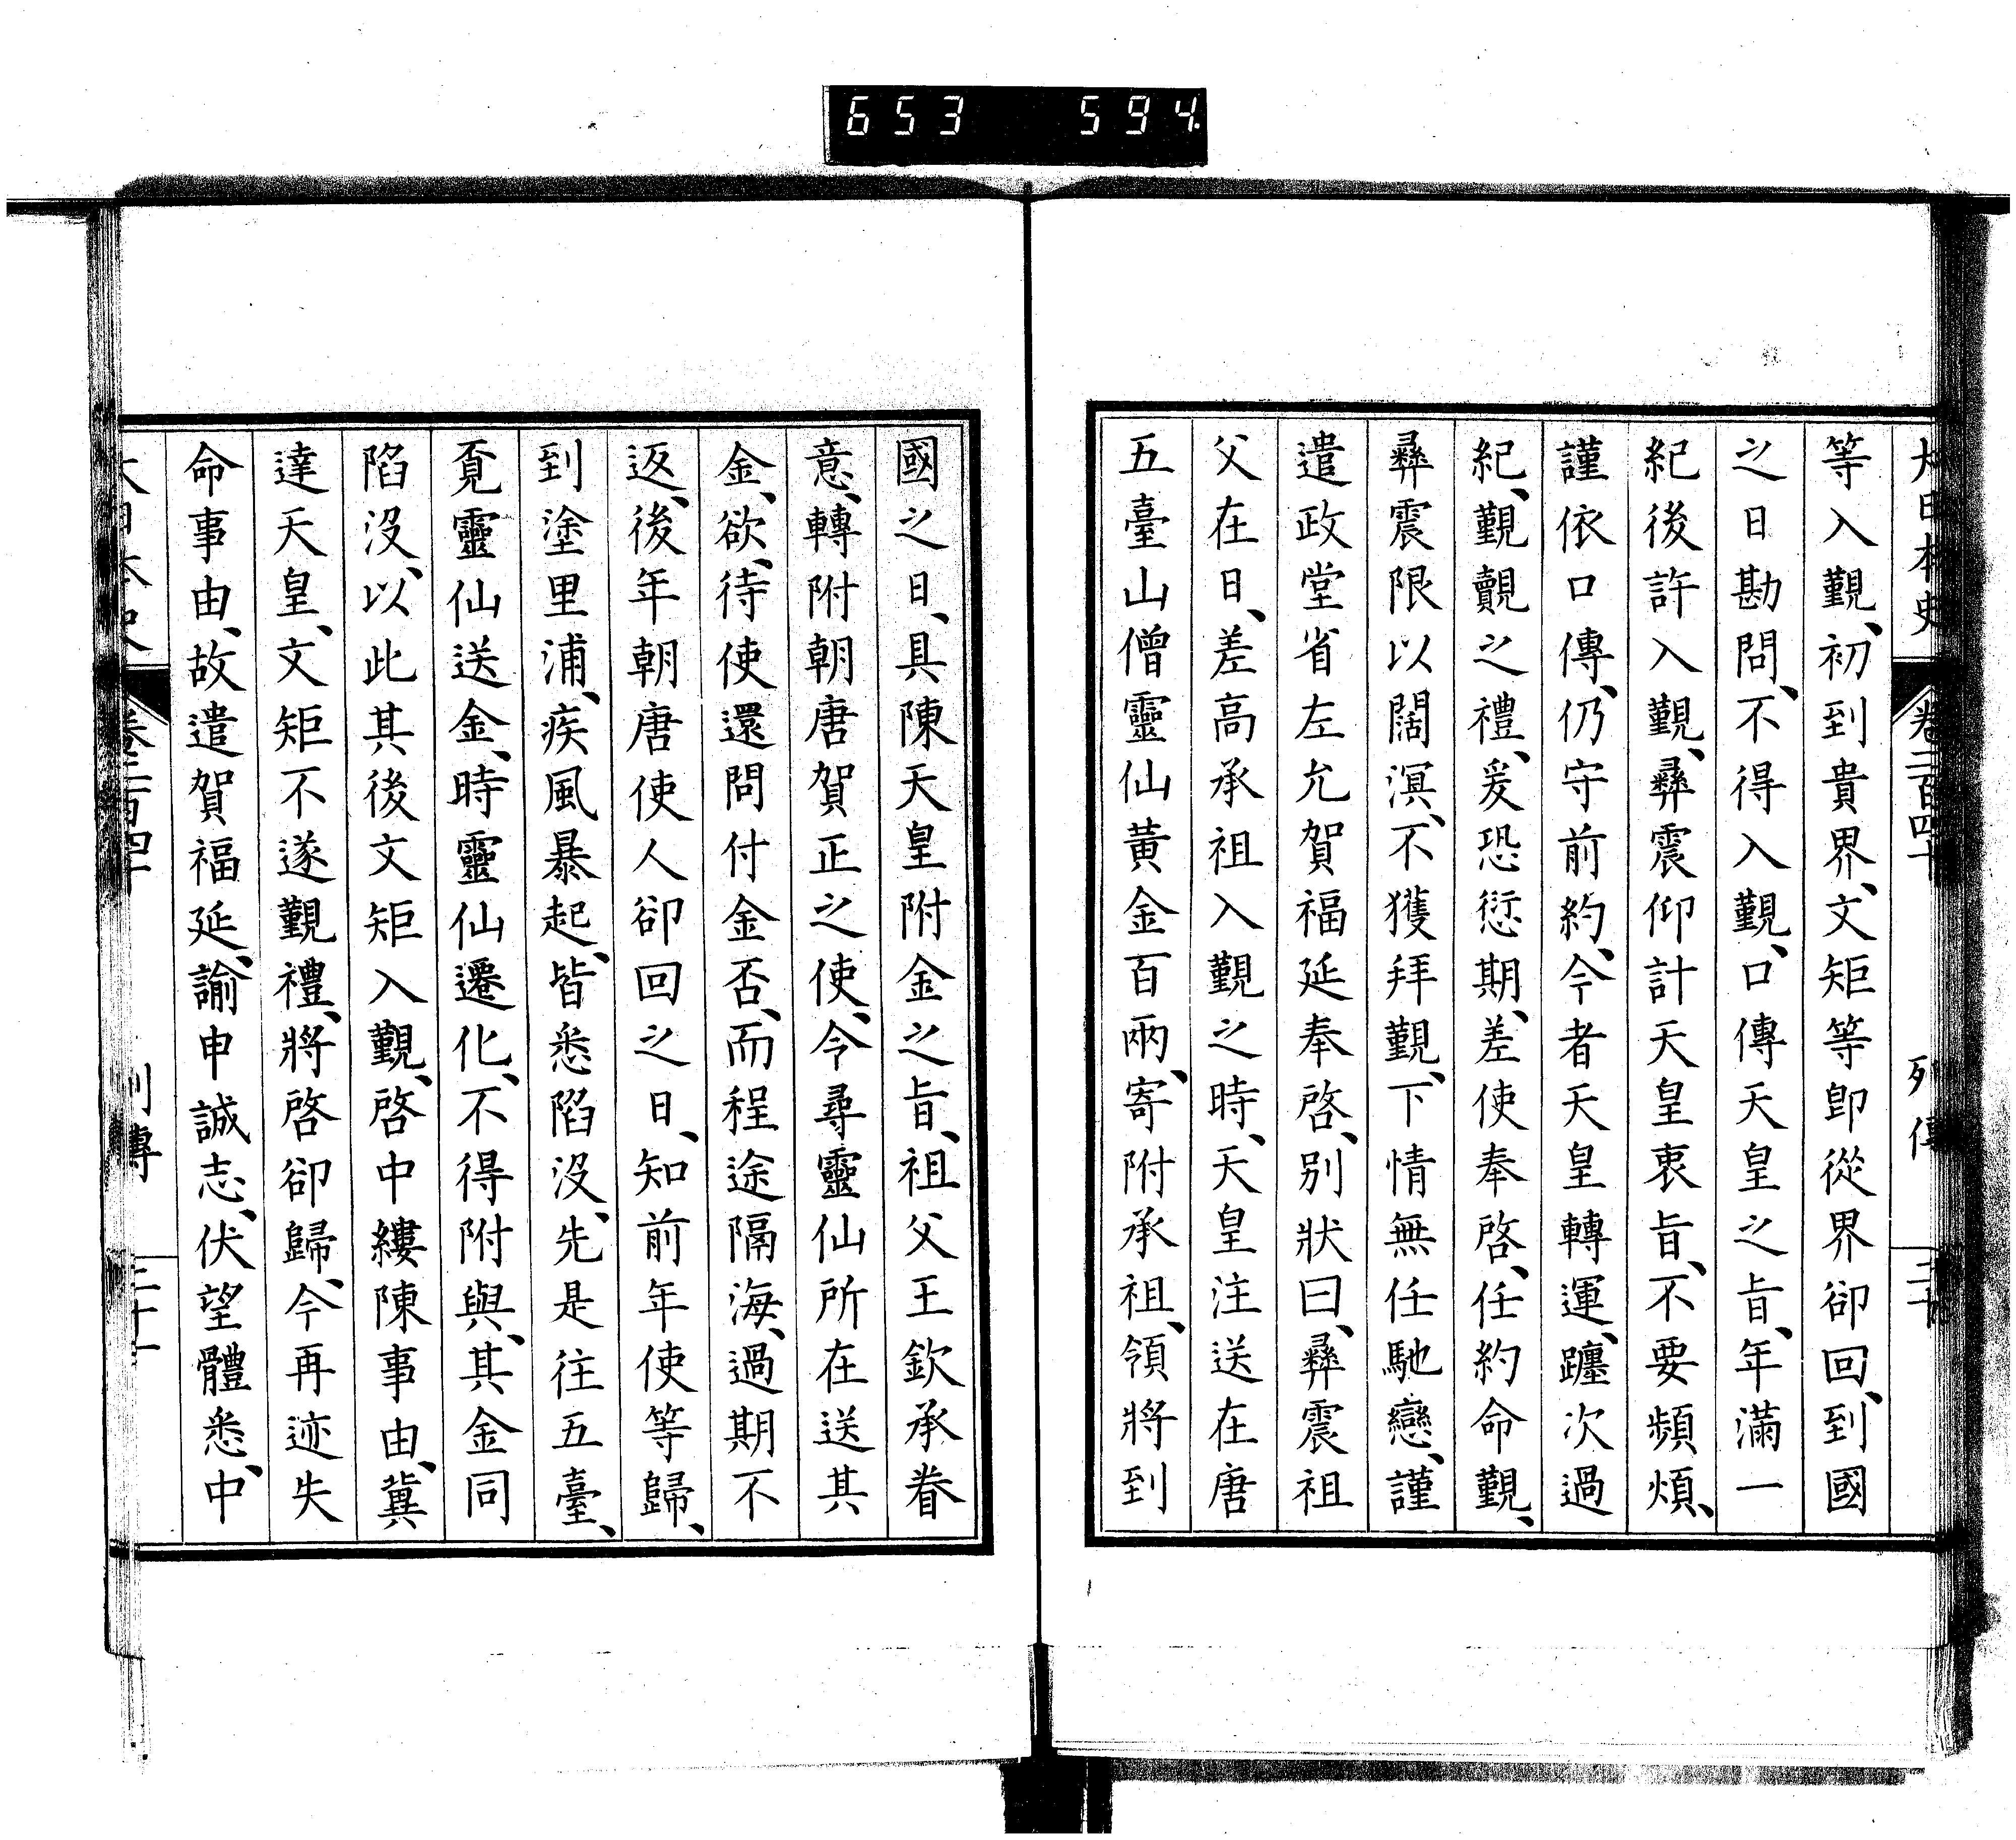 653 594
大日本史 卷二百四十 列傳 二十
等入覲、初到貴界、文矩等卽從界卻回、到國
之日勘問、不得入覲、口傳天皇之旨、年滿一
紀後許入覲、彝震仰計天皇衷旨、不要頻煩、
謹依口傳、仍守前約、今者天皇轉運、躔次過
紀、覲覿之禮、爰恐愆期、差使奉啓、任約命覲、
彝震限以闊溟、不獲拜覲、下情無任馳戀、謹
遣政堂省左允賀福延奉啓、別狀曰、彝震祖
父在日、差高承祖入覲之時、天皇注送在唐
五臺山僧靈仙黃金百兩、寄附承祖、領將到
國之日、具陳天皇附金之旨、祖父王欽承眷
意、轉附朝唐賀正之使、令尋靈仙所在送其
金、欲、待使還問付金否、而程途隔海、過期不
返、後年朝唐使人卻回之日、知前年使等歸、
到塗里浦、疾風暴起、皆悉陷沒、先是往五臺、
覓靈仙送金、時靈仙遷化、不得附與、其金同
陷沒、以此其後文矩入覲、啓中縷陳事由、冀
達天皇、文矩不遂覲禮、將啓卻歸、今再迹失
命事由、故遣賀福延、諭申誠志、伏望體悉、中
大日本史 卷二百四十 列傳 二十一